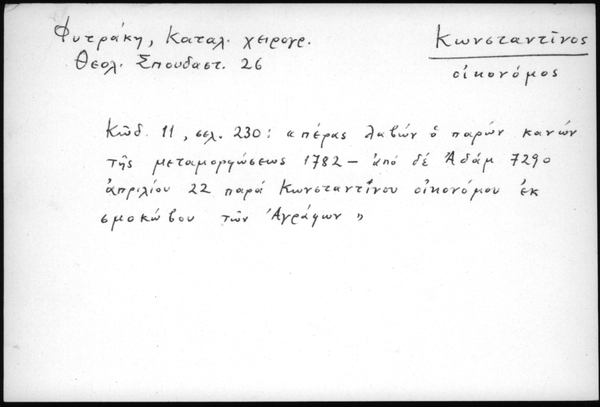 Φυτράκη, Καταλ. χειρογρ.
Θεολ. Σπουδαστ. 26
Κωνσταντῖνος
οἰκονόμος
Κῶδ. 11, σελ. 230: «πέρας λαβών ὁ παρών κανών
τῆς μεταμορφώσεως 1782 – ἀπό δέ Ἀδάμ 7290
ἀπριλίου 22 παρά Κωνσταντίνου οἰκονόμου ἐκ
σμοκώβου τῶν Ἀγράφων»